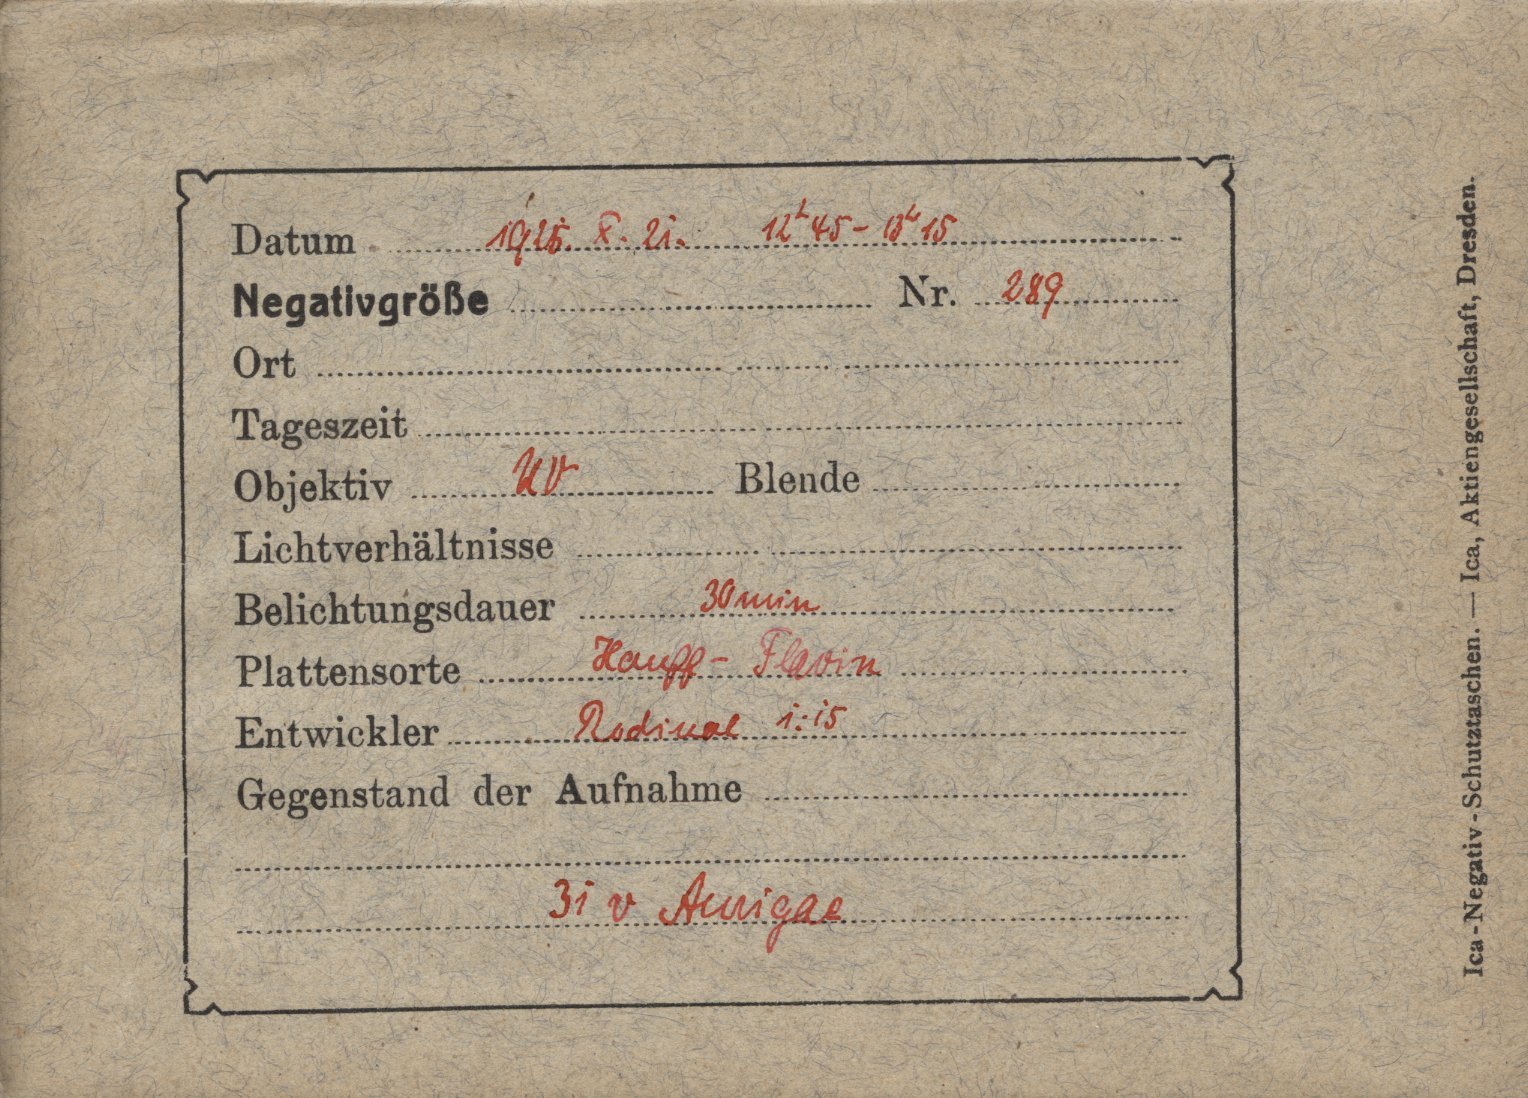 Datum 1925. X. 21. 12h 45 - 13h 15
Negativgröße Nr. 289
Ort
Tageszeit
Objektiv UV Blende
Lichtverhältnisse
Belichtungsdauer 30 min
Plattensorte Hauff - Flavin
Entwickler Rodinal 1:15
Gegenstand der Aufnahme
31 v Aurigae
Ica-Negativ-Schutztaschen. — Ica, Aktiengesellschaft, Dresden.